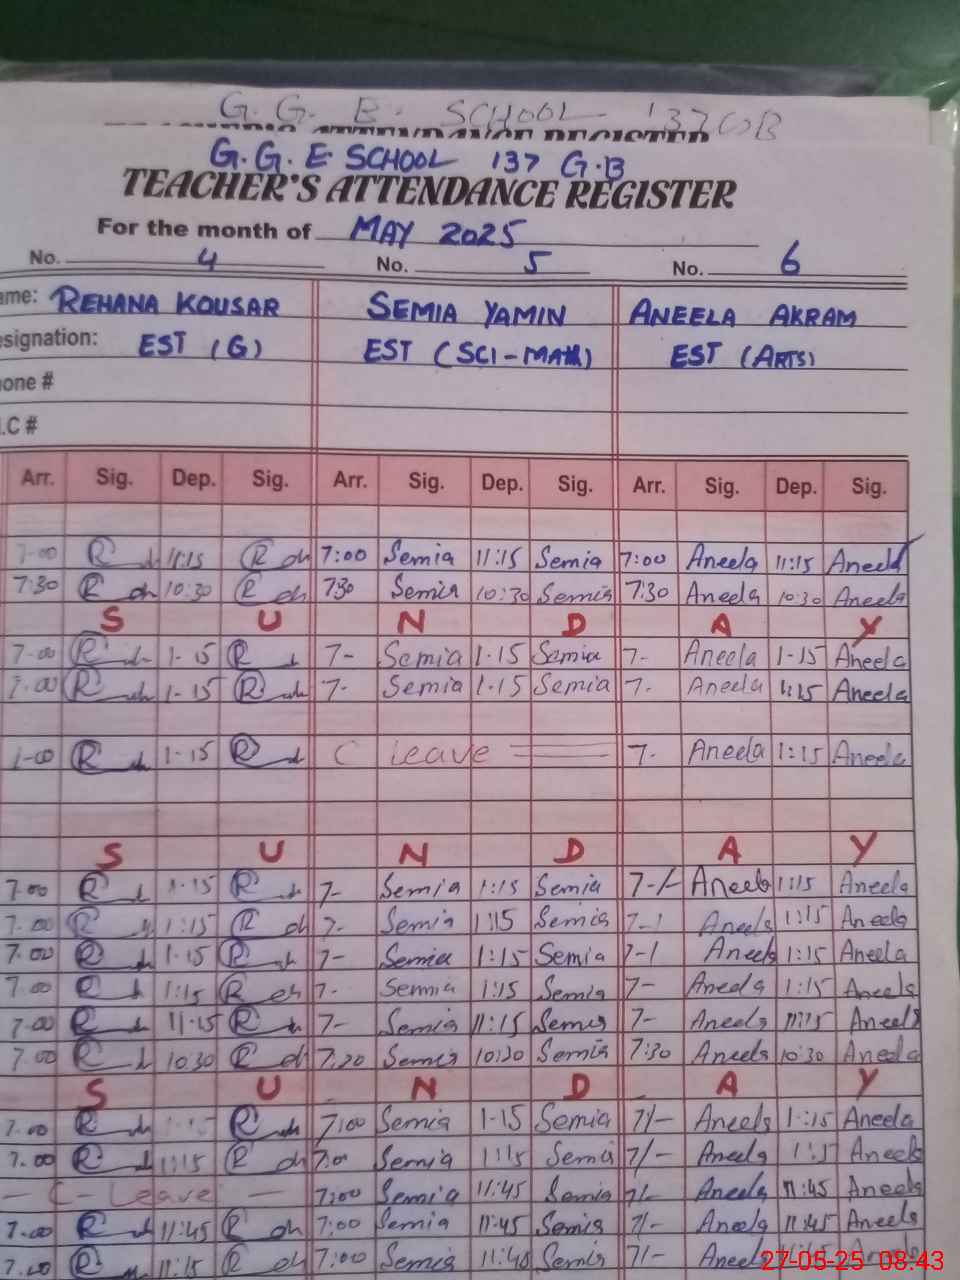 G. G. E. SCHOOL 137 GB
G. G. E SCHOOL 137 G.B
TEACHER'S ATTENDANCE REGISTER
For the month of MAY 2025
No. 4 No. 5 No. 6
ame: REHANA KOUSAR SEMIA YAMIN ANEELA AKRAM
esignation: EST (G) EST (SCI-MATH) EST (ARTS)
one #
.C #
Arr. Sig. Dep. Sig. Arr. Sig. Dep. Sig. Arr. Sig. Dep. Sig.
7-00 11:15 7:00 Semia 11:15 Semia 7:00 Aneela 11:15 Aneela
7:30 10:30 730 Semia 10:30 Semia 7:30 Aneela 10:30 Aneela
S U N D A Y
7-00 1-15 7- Semia 1-15 Semia 7- Aneela 1-15 Aneela
7.00 1-15 7- Semia 1-15 Semia 7- Aneela 1:15 Aneela
1-15 C Leave 7- Aneela 1:15 Aneela
S U N D A Y
7.00 1-15 7- Semia 1:15 Semia Aneela 1:15 Aneela
7.00 1:15 7- Semia 1:15 Semia Aneela 1:15 Aneela
7.00 1-15 7- Semia 1:15 Semia Aneela 1:15 Aneela
7.00 1:15 7- Semia 1:15 Semia 7- Aneela 1:15 Aneela
7-00 11-15 7- Semia 11:15 Semia 7- Aneela 11:15 Aneela
7.00 10.30 Semia Semia 7:30 Aneela 10:30 Aneela
S U N D A Y
7.00 7:00 Semia 1-15 Semia 7/- Aneela 1:15 Aneela
7.00 1:15 7:00 Semia 1:15 Semia 7/- Aneela 1:15 Aneela
- C - Leave - 7:00 Semia 11:45 Semia 7/- Aneela 11:45 Aneela
7.00 11:45 7:00 Semia 11:45 Semia 7/- Aneela 11:45 Aneela
7.00 7:00 Semia Semia 7/- Aneela
27-05-25 08:43